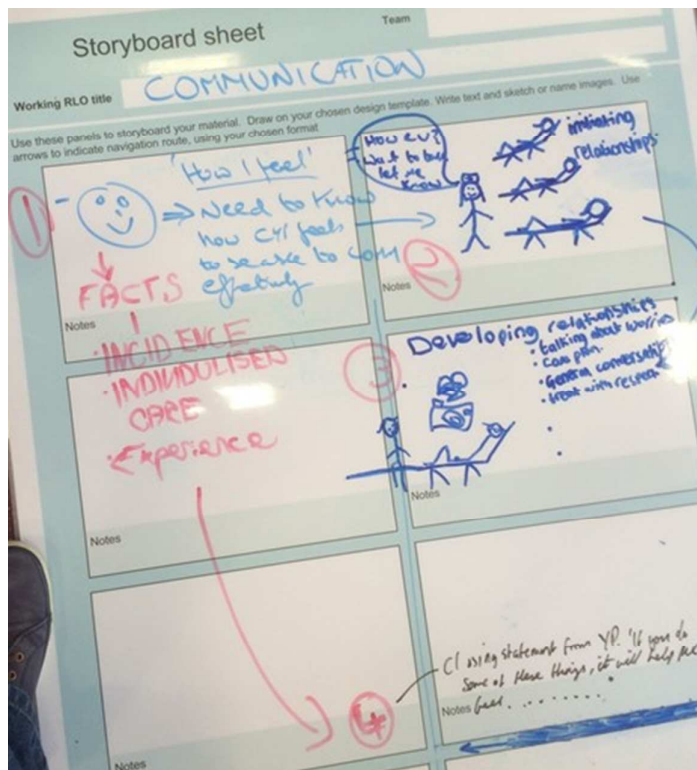 Storyboard sheet
Team
Working RLO title
COMMUNICATION
Use these panels to storyboard your material. Draw on your chosen design template. Write text and sketch or name images. Use
arrows to indicate navigation route, using your chosen format
1
'How I feel'
⇒ Need to know
how CYP feels
to be able to com
effectively
FACTS
Notes
INCIDENCE
INDIVIDULISED
CARE
Experience
Notes
How
want to
let me
know
initiating
relationships
2
Notes
3
Developing relationships
• talking about worries
• Care plan
• General conversation
• treat with respect
Notes
4
Closing statement from YP. 'If you do
some of these things, it will help
feel........
Notes
Notes